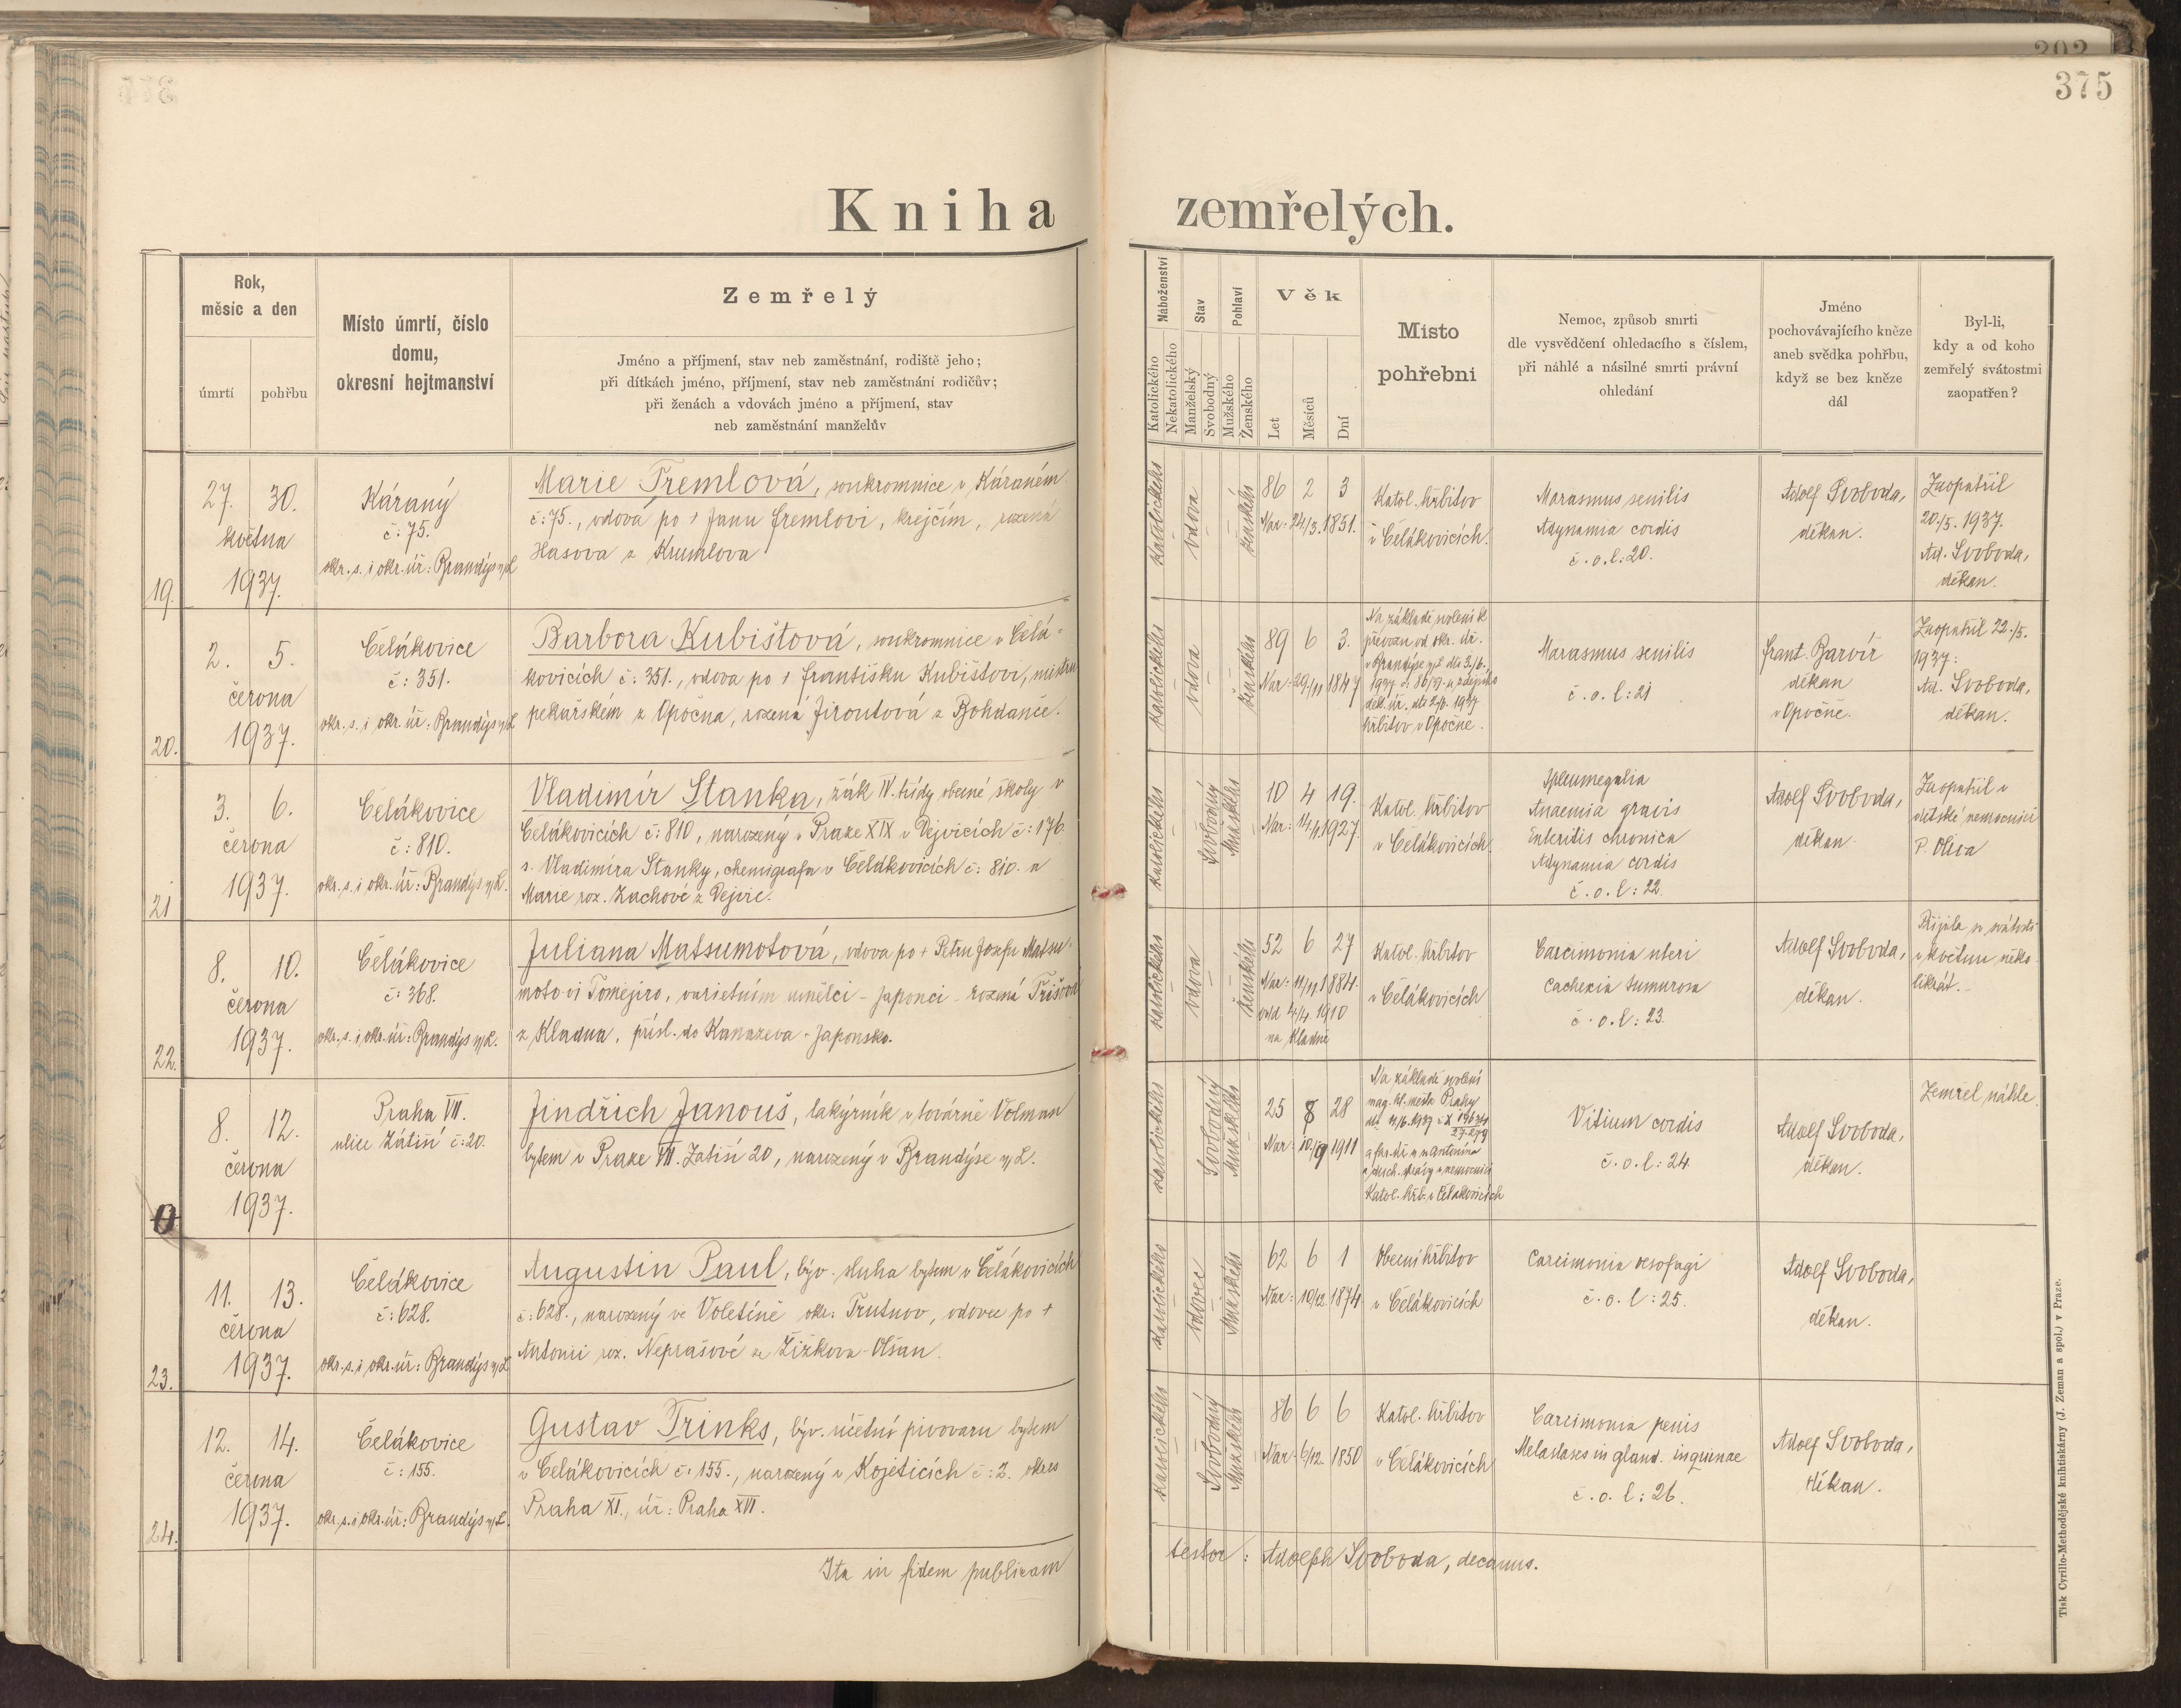 375
Kniha zemřelých.
Rok,
měsíc a den
úmrtí
pohřbu
Místo úmrtí, číslo
domu,
okresní hejtmanství
Zemřelý
Jméno a příjmení, stav neb zaměstnání, rodiště jeho;
při dítkách jméno, příjmení, stav neb zaměstnání rodičův;
při ženách a vdovách jméno a příjmení, stav
neb zaměstnání manželův
Náboženství
Katolického
Nekatolického
Stav
Manželský
Svobodný
Pohlaví
Mužského
Ženského
Věk
Let
Měsíců
Dní
Místo
pohřební
Nemoc, způsob smrti
dle vysvědčení ohledacího s číslem,
při náhlé a násilné smrti právní
ohledání
Jméno
pochovávajícího kněze
aneb svědka pohřbu,
když se bez kněze
dál
Byl-li,
kdy a od koho
zemřelý svátostmi
zaopatřen?
19.
27. 30.
května
1937.
Káraný
č: 75.
okr. s. i okr. úř: Brandýs n/L
Marie Tremlová, soukromnice v Káraném
č: 75., vdova po † Janu Tremlovi, krejčím, rozená
Hasova z Krumlova
katolického
vdova
ženského
86 2 3
Nar: 24/3. 1851.
Katol. hřbitov
v Čelákovicích.
Marasmus senilis
Adynamia cordis
č. o. l: 20.
Adolf Svoboda,
děkan.
Zaopatřil
20./5. 1937.
Ad. Svoboda,
děkan.
20.
2. 5.
června
1937.
Čelákovice
č: 351.
okr. s. i okr. úř: Brandýs n/L
Barbora Kubištová, soukromnice v Čelá-
kovicích č: 351., vdova po † Františku Kubištovi, mistru
pekařském z Opočna, rozená Jiroutová z Bohdanče.
katolického
vdova
ženského
89 6 3.
Nar: 29./11 1847
Na základě svolení k
převozu od okr. úř.
v Brandýse n/L dto 3./6.
1937 č: 86/37. a zdejšího
děk. úř. dto 2/6. 1937
hřbitov v Opočně.
Marasmus senilis
č. o. l: 21
Frant. Barvíř
děkan
v Opočně.
Zaopatřil 22./5.
1937:
Ad. Svoboda,
děkan.
21
3. 6.
června
1937.
Čelákovice
č: 810.
okr. s. i okr. úř: Brandýs n/L.
Vladimír Stanka, žák IV. třídy obecné školy v
Čelákovicích č: 810, narozený v Praze XIX v Dejvicích č: 176.
s. Vladimíra Stanky, chemigrafa v Čelákovicích č: 810. a
Marie roz. Zachové z Dejvic.
katolického
Svobodný
Mužského
10 4 19.
Nar: 14/1. 1927.
Katol. hřbitov
v Čelákovicích.
Splenmegalia
Anaemia gravis
Enteritis chronica
Adynamia cordis
č. o. l: 22.
Adolf Svoboda,
děkan.
Zaopatřil v
dětské nemocnici
P. Oliva
22.
8. 10.
června
1937.
Čelákovice
č: 368.
okr. s. i okr. úř: Brandýs n/L.
Juliana Matsumotová, vdova po † Petru Josefu Matsu-
moto-vi Tomejiro, varietním umělci - Japonci - rozená Trišová
z Kladna, přísl. do Kanazeva - Japonsko.
katolického
vdova
ženského
52 6 27
Nar: 11/11 1884.
4/4. 1910
na Kladně
Katol. hřbitov
v Čelákovicích
Carcimonia uteri
Cachexia tumurosa
č. o. l: 23.
Adolf Svoboda,
děkan.
Přijala sv. svátosti
v květnu něko-
likrát.-
8. 12.
června
1937.
Praha VII.
ulice Zátiší č: 20.
Jindřich Janouš, lakýrník v továrně Volman
bytem v Praze VII. Zatiší 20, narozený v Brandýse n/L.
katolického
Svobodný
Mužského
25 8 28
Nar: 10./9 1911
Na základě svolení
mag. hl. města Prahy
Katol. hřb. v Čelakovicích
Vitium cordis
č. o. l: 24.
Adolf Svoboda,
děkan.
Zemřel náhle.
23.
11. 13.
června
1937.
Čelákovice
č: 628.
okr. s. i okr. úř: Brandýs n/L
Augustin Paul, býv. sluha bytem v Čelákovicích
č: 628., narozený ve Voletíně okr: Trutnov, vdovec po †
Antonii roz. Neprašové ze Žižkova-Olšan.
katolického
vdovec
Mužského
62 6 1
Nar: 10/12. 1874.
Obecní hřbitov
v Čelákovicích
Carcimonia oesofagi
č. o. l: 25.
Adolf Svoboda,
děkan.
24.
12. 14.
června
1937.
Čelákovice
č: 155.
okr. s. i okr. úř: Brandýs n/L.
Gustav Trinks, býv. účetní pivovaru bytem
v Čelákovicích č: 155., narozený v Kojeticích č: 2. okres
Praha XI., úř: Praha XVI.
katolického
Svobodný
Mužského
86 6 6
Nar: 6/12. 1850
Katol. hřbitov
v Čelákovicích
Carcimonia penis
Metastases in gland. inguinae
č. o. l: 26.
Adolf Svoboda,
děkan.
Ita in fidem publicam
testor: Adolph Svoboda, decanus.
Tisk Cyrillo-Methodějské knihtiskárny (J. Zeman a spol.) v Praze.